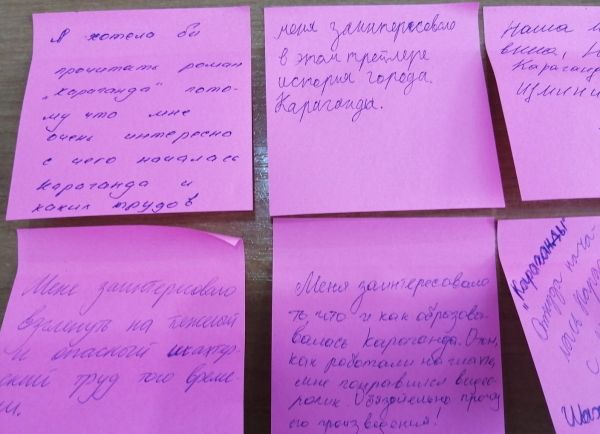 Я хотела бы
прочитать роман
"Караганда" пото-
му что мне
очень интересно
с чего началась
Караганда и
каких трудов
меня заинтересовало
в этом трейлере
история города.
Караганда.
Наша
Мене заинтересовало
взглянуть на тяжелый
и опасный шахтер-
ский труд того време-
ни.
Меня заинтересовало
то что и как образова-
валась Караганда. О том,
как работали на шахте,
мне понравился видео-
ролик. Обязательно прочту
это произведения!
"Караганды"
Откуда нача-
лась Кара
с